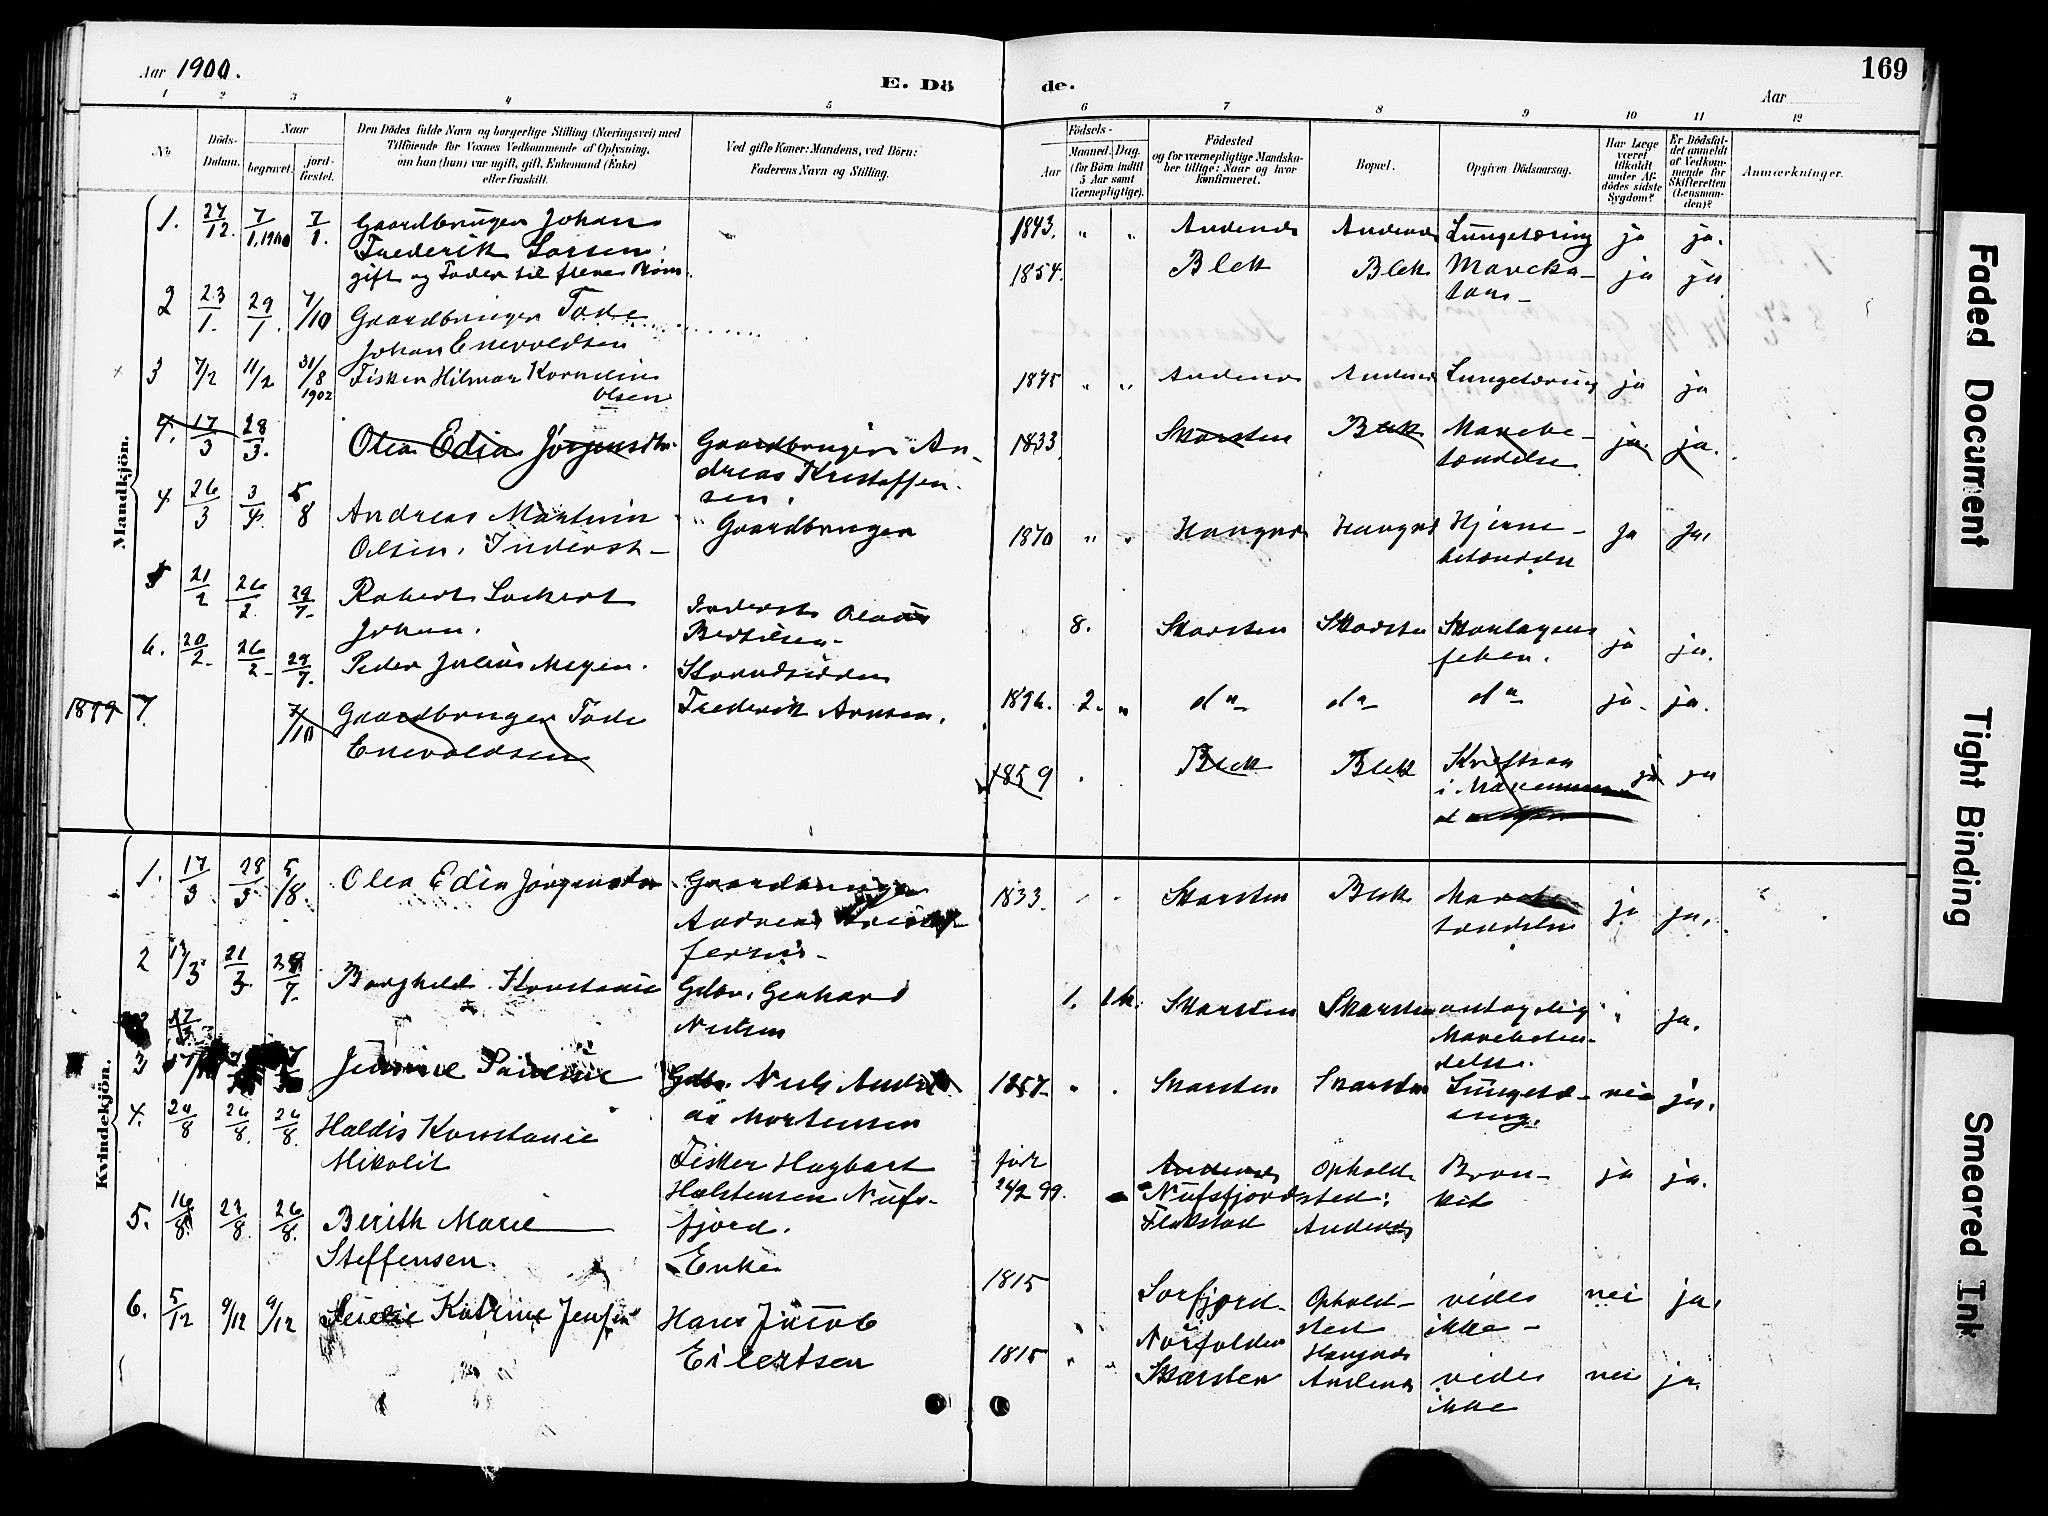 Aar 1900.
E. Dö
de.
169
Aar
1 2 3 4 5 6 7 8 9 10 11 12
No
Döds-
Datum.
Naar
begravet.
jord-
fæstet.
Den Dödes fulde Navn og borgerlige Stilling (Næringsvei) med
Tilföiende for Voxnes Vedkommende af Oplysning,
om han (hun) var ugift, gift, Enkemand (Enke)
eller fraskilt.
Ved gifte Koner: Mandens, ved Börn:
Faderens Navn og Stilling.
Födsels-
Aar
Maaned. Dag.
(for Börn indtil
5 Aar samt
Værnepligtige).
Födested
og for værnepligtige Mandska-
ber tillige: Naar og hvor
konfirmeret.
Bopæl.
Opgiven Dödsaarsag.
Har Læge
været
tilkaldt
under Af-
dödes sidste
Sygdom?
Er Dödsfal-
det anmeldt
af Vedkom-
mende for
Skifteretten
(Lensman-
den)?
Anmærkninger.
Mandkjön.
1. 27/12. 7/1.1900 7/1. Gaardbruger Johan
Frederik Larsen.
gift og Fader til flere Börn.
1843. " " Andenes Andenes Lungetæring ja ja.
2 23/1. 29/1. 7/10 Gaardbruger Tode
Johan Enevoldsen
1854. Blek Blek Maveka-
tar-
ja ja
3 7/2 11/2 31/8 1902 Fisker Hilmar Kornelius
Olsen
1875 " " Andenes Andenes Lungetæring ja ja
4. 17/3 28/3. Olea Edia Jørgensdtr Gaardbruger An-
dreas Kristoffer-
sen.
1833 Skarsten Blek Mavebe-
tændelse
ja. ja.
4 26/3 3/4. 5/8 Andreas Martinus
Olsen. Inderst- " Gaardbruger
1870 " " Haugnes Haugnes Hjerne-
betændelse
ja ja,
5 21/2 26/2. 29/7. Robert Lockert
Johan.
Inderst Olaus
Bertilsen-
8. Skarsten Skarsten Skarlagens
feber.
ja ja.
6. 20/2. 26/2- 29/7. Peder Julius Meyer. Strandsidder
Frederik Arntsen.
1896. 2. " do do do ja. ja.
1899 7. 7/10 Gaardbruger Tode
Enevoldsen
1859 Blek Blek Kræftsaar
i Mavemunden
ja ja
Kvindekjön.
1. 17/3 28/3 5/8. Olea Edia Jørgensdtr Gaardbruger
Andreas Kristof-
fersen-
1833. Skarsten Blek Mavebe
tændelse
ja ja,
2 13/3 21/3 29/7. Borghild Konstanse Gdbr. Gerhard
Nielsen
1. Skarsten Skarsten antagelig
Mavebetæn-
delse.
" ja.
3 Jensine Pauline Gdbr. Niels Andre
as Mortensen
1857- " . Skarsten Skarsten Lungetæ-
ring.
nei ja.
4. 24/8 26/8. 26/8. Haldis Konstanse
Nikolit
Fisker Hagbart
Halstensen Nufs-
fjord.
født
24/2 99. Andenes
Nufsfjord
Flakstad
Ophold
sted:
Andenes
Bron-
kit
ja ja.
5. 16/8. 23/8. 26/8. Berith Marie
Steffensen.
Enke
1815 Sørfjord
Nørfolden
Ophold-
sted
Haugnes
vides
ikke-
nei ja,
6. 5/12 9/12 9/12 Katrine Jensen Hans Jacob
Eilertsen
1815 " " Skarsten Andenes vides
ikke
nei ja.
Faded Document
Tight Binding
Smeared Ink